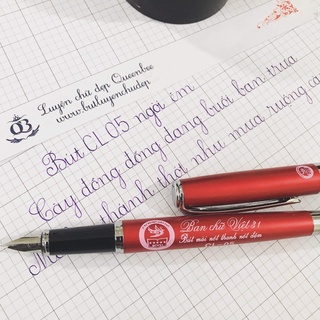 Luyện chữ đẹp Queenbee
www.butluyenchudep
QB
Bút CL05 ngòi êm
Cày đồng đóng đang buổi ban trưa
thánh thót như mưa ruộng cày
Bạn chữ Việt 31
Bút mài nét thanh nét đậm
CL-05